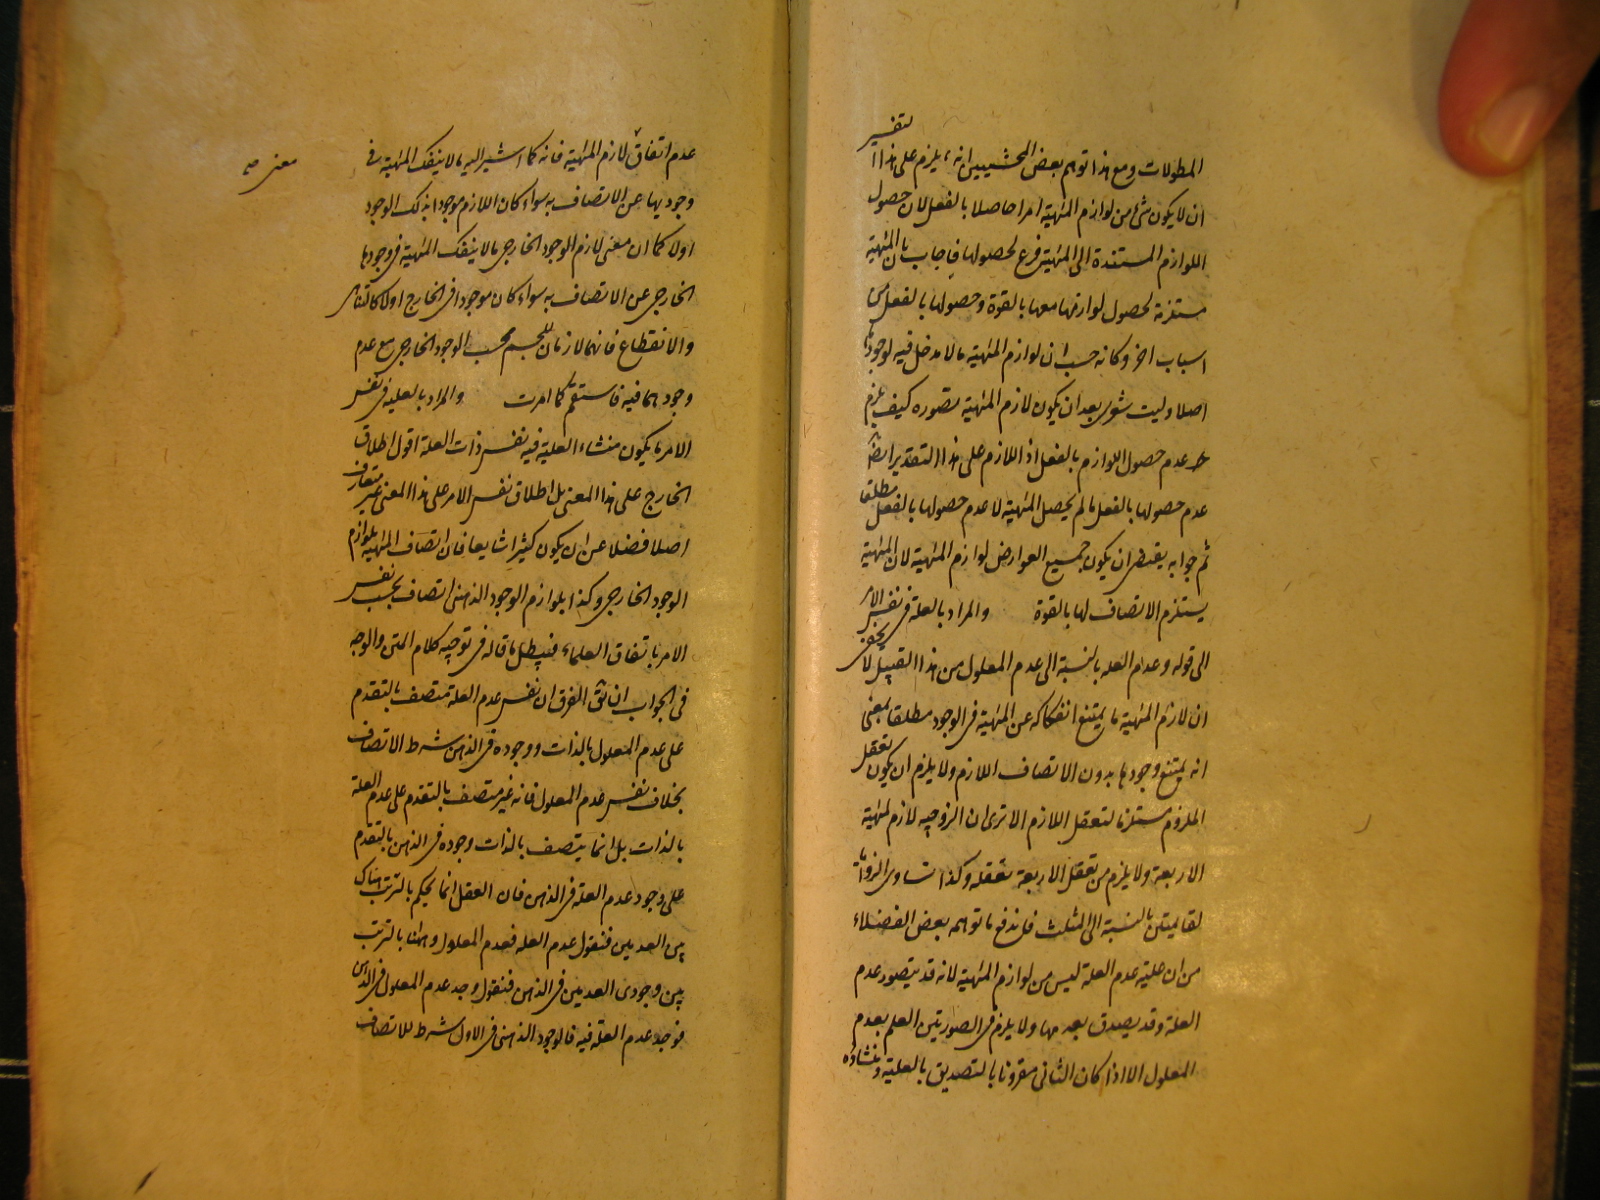 المطولات ومع هذا توهم بعض المحشيين انه يلزم على هذا التفسير
ان لا يكون شئ من لوازم المهية امرا حاصلا بالفعل لان حصول
اللوازم المستندة الى المهية فرع لحصولها فاجاب بان المهية
مستلزمة لحصول لوازمها معها بالقوة وحصولها بالفعل من
اسباب اخر وكانه حسب ان لوازم المهية ما لا مدخل فيه لوجودها
اصلا وليت شعرى بعد ان يكون لازم المهية بتصوره كيف يلزم
عدم حصول اللوازم بالفعل اذ اللازم على هذا التقدير ايضا
عدم حصولها بالفعل ما لم يحصل المهية لا عدم حصولها بالفعل مطلقا
ثم جوابه يقتضى ان يكون جميع العوارض لوازم المهية لان المهية
يستلزم الاتصاف لها بالقوة والمراد بالعلة فى نفس الامر
الى قوله وعدم العلة بالنسبة الى عدم المعلول من هذا القبيل لا يخفى
ان لازم المهية ما يمتنع انفكاكه عن المهية فى الوجود مطلقا بمعنى
انه يمتنع وجودها بدون الاتصاف اللازم ولا يلزم ان يكون تعقل
الملزوم مستلزما لتعقل اللازم الا ترى ان الزوجية لازم لمهية
الاربعة ولا يلزم من تعقل الاربعة تعقله وكذا تساوى الزوايا
لقائمتين بالنسبة الى المثلث فاندفع ما توهمه بعض الفضلاء
من ان علية عدم العلة ليس من لوازم المهية لانه قد يتصور عدم
العلة وقد يصدق بعدمها ولا يلزم فى الصورتين العلم بعدم
المعلول الا اذا كان الثانى مقرونا بالتصديق بالعلية ومنشاؤه
عدم اتفاق لازم المهية فانه كما اشير اليه ما لا ينفك المهية فى
معنى صح
وجوديها عن الاتصاف به سواء كان اللازم موجودا بذلك الوجود
اولا كما ان معنى لازم الوجود الخارجى ما لا ينفك المهية فى وجودها
الخارجى عن الاتصاف به سواء كان موجودا فى الخارج اولا كالتناهى
والانقطاع فانهما لازمان للجسم بحسب الوجود الخارجى مع عدم
وجودهما فيه فاستقم كما امرت والمراد بالعلية فى نفس
الامر ما يكون منشاء العلية فيه نفس ذات العلة اقول اطلاق
الخارج على هذا المعنى بل اطلاق نفس الامر على هذا المعنى غير متعارف
اصلا فضلا عن ان يكون كثيرا شايعا فان اتصاف المهية بلوازم
الوجود الخارجى وكذا بلوازم الوجود الذهنى اتصاف بحسب نفس
الامر باتفاق العلماء فيبطل ما قاله فى توجيه كلام المتن والوجه
فى الجواب ان الفرق ان نفس عدم العلة متصف بالتقدم
على عدم المعلول بالذات ووجوده فى الذهن شرط الاتصاف
بخلاف نفس عدم المعلول فانه غير متصف بالتقدم على عدم العلة
بالذات بل انما يتصف بالذات وجوده فى الذهن بالتقدم
على وجود عدم العلة فى الذهن فان العقل انما يحكم بالترتب هناك
بين العدمين فنقول عدم العلة فعدم المعلول وههنا بالترتب
بين وجودى العدمين فى الذهن فنقول وجد عدم المعلول فى الذهن
فوجد عدم العلة فيه فالوجود الذهنى فى الاول شرط للاتصاف